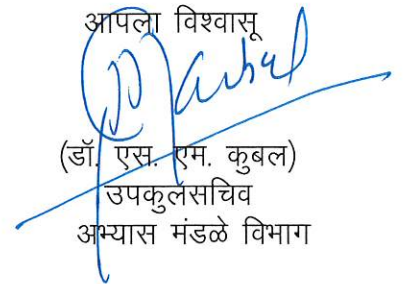 आपला विश्वासू
(डॉ. एस. एम. कुबल)
उपकुलसचिव
अभ्यास मंडळे विभाग